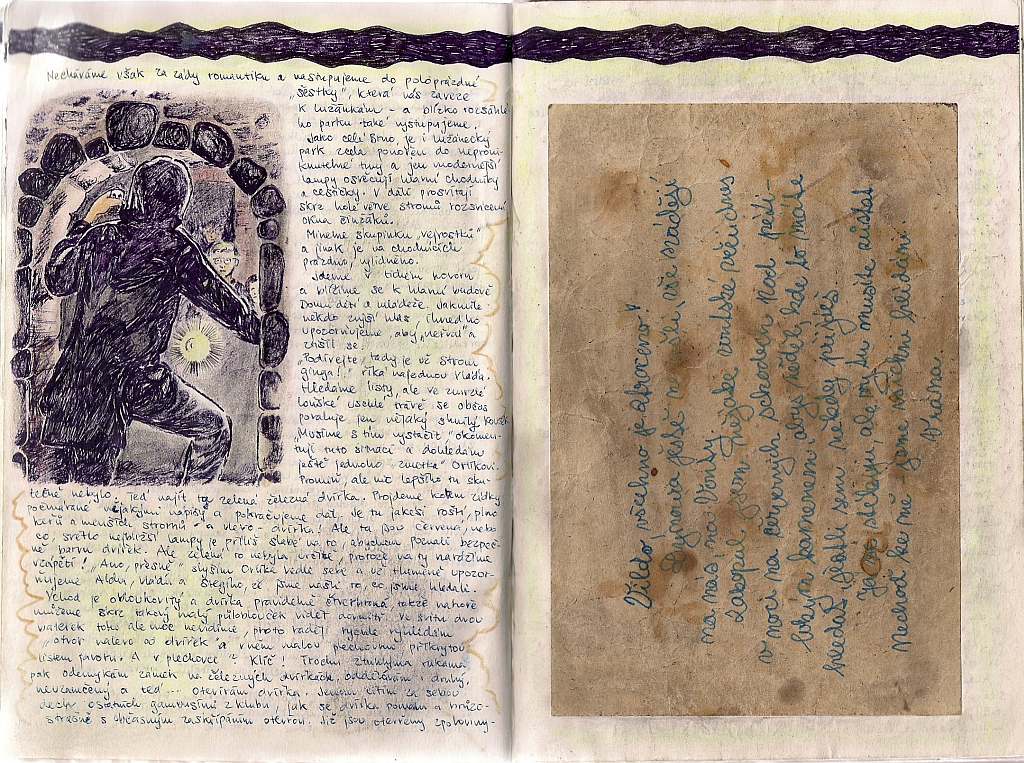 Necháváme však za zády romantiku a nastupujeme do poloprázdné
„šestky", která nás zaveze
k Lužánkám – a blízko rozsáhlé-
ho parku také vystupujeme.
Jako celé Brno, je i Lužánecký
park zcela ponořen do nepronik-
nutelné tmy a jen modernější
lampy osvěcují hlavní chodníky
a cestičky. V dáli prosvítají
skrz holé větve stromů rozsvícená
okna činžáků.
Mineme skupinku „výrostků"
a jinak je na chodnících
prázdno, vylidněno.
Jdeme v tichém hovoru
a blížíme se k hlavní budově
Domu dětí a mládeže. Jakmile
někdo zvýší hlas, ihned ho
upozorňujeme, aby „neřval" a
ztišil se.
„Podívejte, tady je už strom
ginga!" říká najednou Vláďa.
Hledáme listy, ale ve zmrzlé
loňské uschlé trávě se občas
povaluje jen nějaký shnilý kousek.
„Musíme s tím vystačit" okomen-
tuji tuto situaci a dohledám
ještě jednoho „zmetka" Orlíkovi.
Promiň, ale nic lepšího tu sku-
tečně nebylo. Teď najít ta zelená železná dvířka. Projdeme kolem zídky
počmárané nějakými nápisy a pokračujeme dál. Je tu jakési roští, plno
keřů a menších stromů a vlevo – dvířka! Ale ta jsou červená, nebo
co, světlo nejbližší lampy je příliš slabé na to, abychom poznali bezpeč-
ně barvu dvířek. Ale zelená to nebyla určitě, protože na ty narážíme
vzápětí! „Ano, přesně" slyším Orlíka vedle sebe a už tlumeně upozor-
ňujeme Aldu, Vláďu a Stegiho, že jsme našli to, co jsme hledali.
Vchod je obloukovitý a dvířka pravidelně čtverhraná, takže nahoře
můžeme skrz takový malý půloblouček vidět dovnitř. Ve svitu dvou
baterek toho ale moc nevidíme, proto raději rychle vyhledám
otvor nalevo od dvířek a v něm malou plechovku přikrytou
listem javoru. A v plechovce? Klíč! Trochu ztuhlýma rukama
pak odemykám zámek na železných dvířkách, oddělávám i druhý,
neuzamčený a teď ... otevírám dvířka. Jenom cítím za sebou
dech ostatních gambusínů z klubu, jak se dvířka pomalu a hrůzo-
strašně s občasným zaskřípáním otevřou. Již jsou otevřeny zpoloviny –
Vildo, všechno je ztraceno!
Dýmovnice ještě ..., vše svádějí
na nás na Vonty.
Zakopal jsem ... vontské ... dnes
v noci na červených schodech. Kod ...
... kamenem abys věděl kde to máš
hledat jestli sem někdy přijdeš.
Já jsem ..., ale ty ho musíš získat.
Nechoď ke mě jsme všichni hlídáni
vrátna.